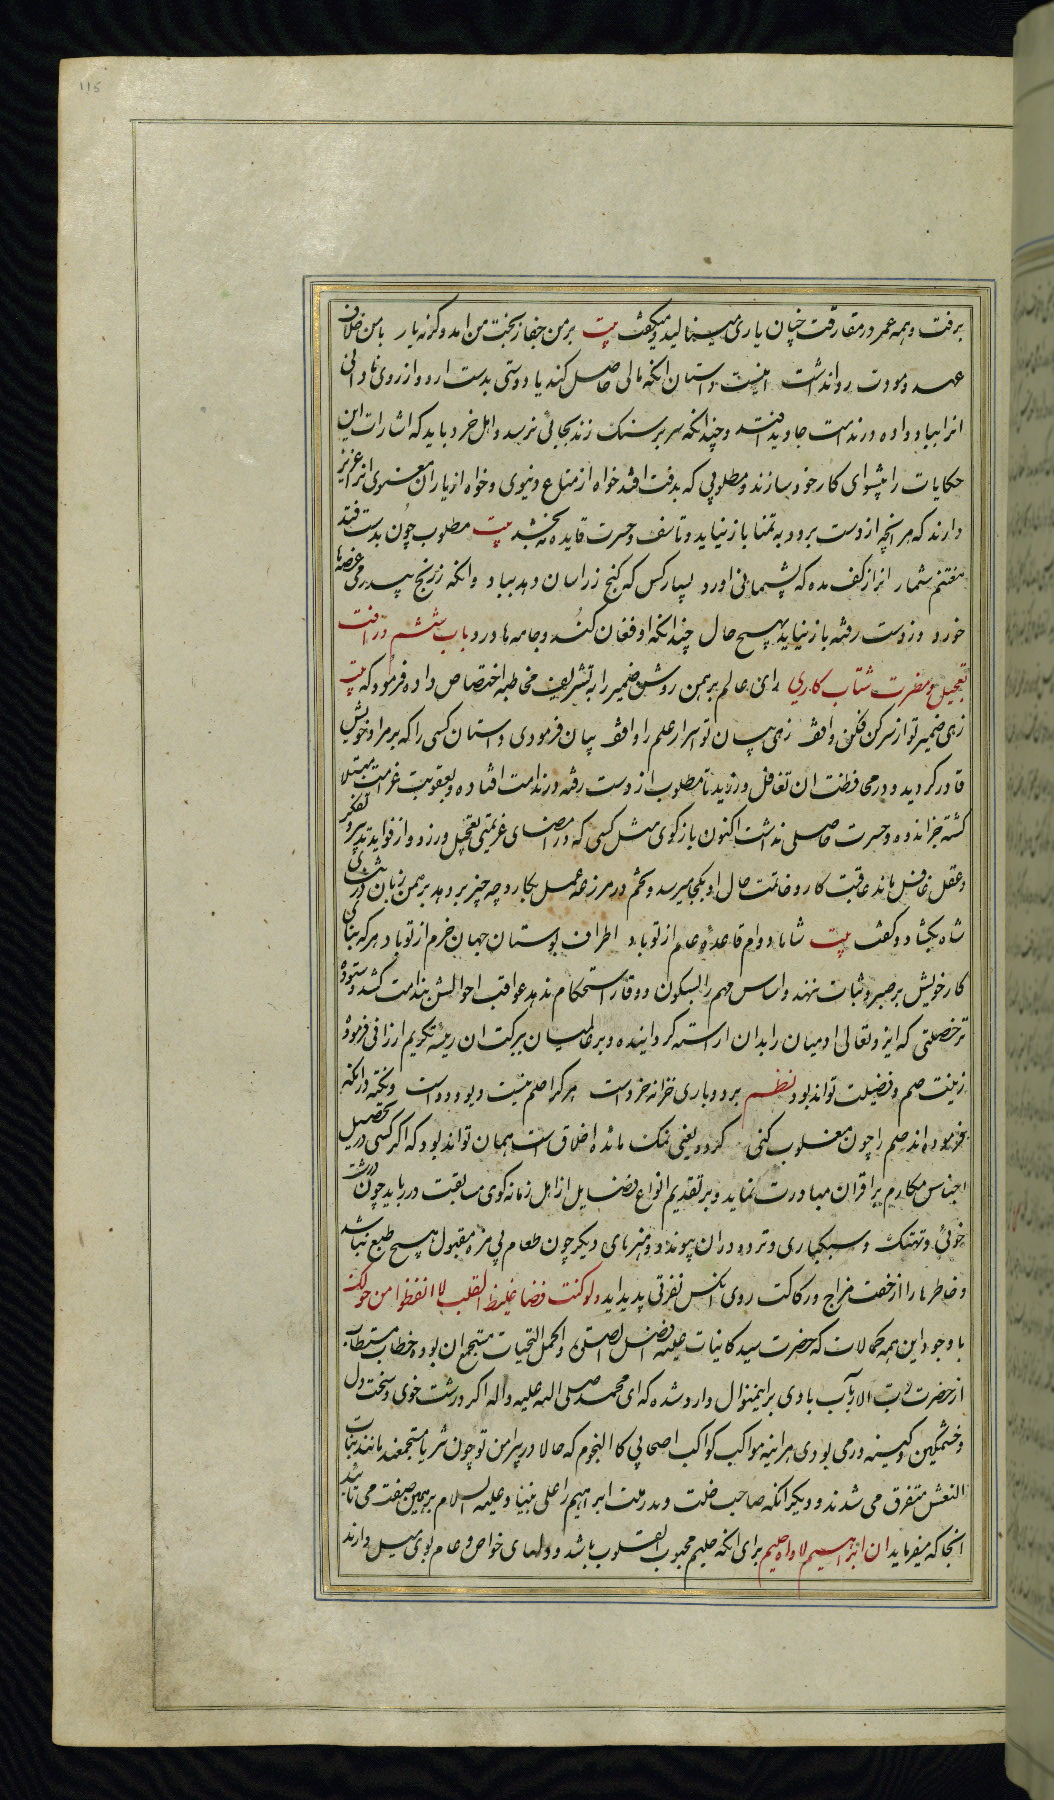 115
برفت و همه عمر در مفارقت چنان یاری مینالید و میگفت بیت بر من جفا ز بخت من آمد وگرنه یار با من خلاف
عهد و مودت روا نداشت اینست داستان آنکه مالی حاصل کند یا دوستی بدست آرد و از روی نادانی
آنرا بباد داده در ندامت جاوید افتد و چندانکه سر بر سنک زند بجائی نرسد و اهل خرد باید که اشارات این
حکایات را پیشوای کار خود سازند و مطلوبی که بدست افتد خواه از متاع دنیوی و خواه از یاران معنوی آنرا عزیز
دارند که هر آنچه از دست برود به تمنا باز نیاید و تاسف و حسرت فایده نبخشد بیت مطلوب چون بدست فتد
مغتنم شمار آنرا ز کف مده که پشیمانی آورد بسیار کس که کنج ز آسان دهد بباد وانکه ز رنج بیدرمی غصه‌ها
خورد و ز دست رفته باز نیاید بهیچ حال چندانکه او فغان کند و جامه‌ها درد باب ششم در آفت
تعجیل و مضرت شتاب کاری رای عالم برهمن روشن ضمیر را به تشریف مخاطبه اختصاص داده فرمود که بیت
زهی ضمیر تو از سر کن فکن واقف زهی بیان تو اسرار علم را واقف بیان فرمودی داستان کسی را که بر مراد خویش
قادر کردید و در محافظت آن تغافل ورزید تا مطلوب از دست رفته در ندامت افتاده و بعقوبت غرامت مبتلا
کشته جز اندوه و حسرت حاصلی نداشت اکنون بازکوی مثل کسی که در امضای عزیمتی تعجیل ورزد و از فواید تدبیر و تفکر
و عقل غافل ماند عاقبت کار و خاتمت حال او بکجا میرسد و تخم در مزرعه عمل بکارد چه چیز بر دهد برهمن زبان در ثنای
شاه بکشاد و کفت بیت شاها دوام قاعده عالم از تو باد اطراف بوستان جهان خرم از تو باد هر که بنای
کار خویش بر صبر و ثبات ننهد و اساس مهم را بسکون و وقار استحکام ندهد عواقب احوالش بندامت کشد و ستوده
تر خصلتی که ایزد تعالی آدمیان را بدان آراسته کردانیده و بر عالمیان ببرکت آن ریشه تکریم ارزانی فرموده
زینت حلم و فضیلت تواند بود نظم بردباری خزانه خردست هر کرا حلم نیست دیو و ددست و نکته در آنکه
فرموده‌اند حلم را چون مغلوب کنی کردد یعنی نمک مائده اخلاق است همان تواند بود که اگر کسی در تحصیل
اجناس مکارم بر اقران مبادرت نماید و بر تقدیم انواع فضایل از اهل زمانه کوی مسابقت در رباید چون درشت
خوئی و تهتک و سبکباری و تردد در آن پیوندد و هنرهای دیکر چون طعام بی مزه مقبول هیچ طبع نباشد
و خاطرها را از خفت مزاج و رکاکت روی آنکس نفرتی پدید آید ولو کنت فضا غلیظ القلب لا انفظوا من حولک
با وجود این همه کمالات که حضرت سید کاینات علیه افضل الصلوة و اکمل التحیات مستجمع آن بوده خطاب مستطاب
از حضرت رب الارباب با وی براینمنوال وارد شده که ای محمد صلی الله علیه و اله اکر درشت خوی و سخت دل
و خشمکین و کینه ور می بودی هر اینه مواکب کواکب اصحابی کالنجوم که حالا در پیرامن تو چون ثریا مستجمعند مانند بنات
النعش متفرق می شدند و دیکر آنکه صاحب خلت و پدر ملت ابراهیم را علی نبینا و علیه السلام بهمین صفت می ستاید
آنجا که میفرماید ان ابراهیم لاواه حلیم برای آنکه حلیم محبوب القلوب باشد و دلهای خواص و عام بوی میل دارند